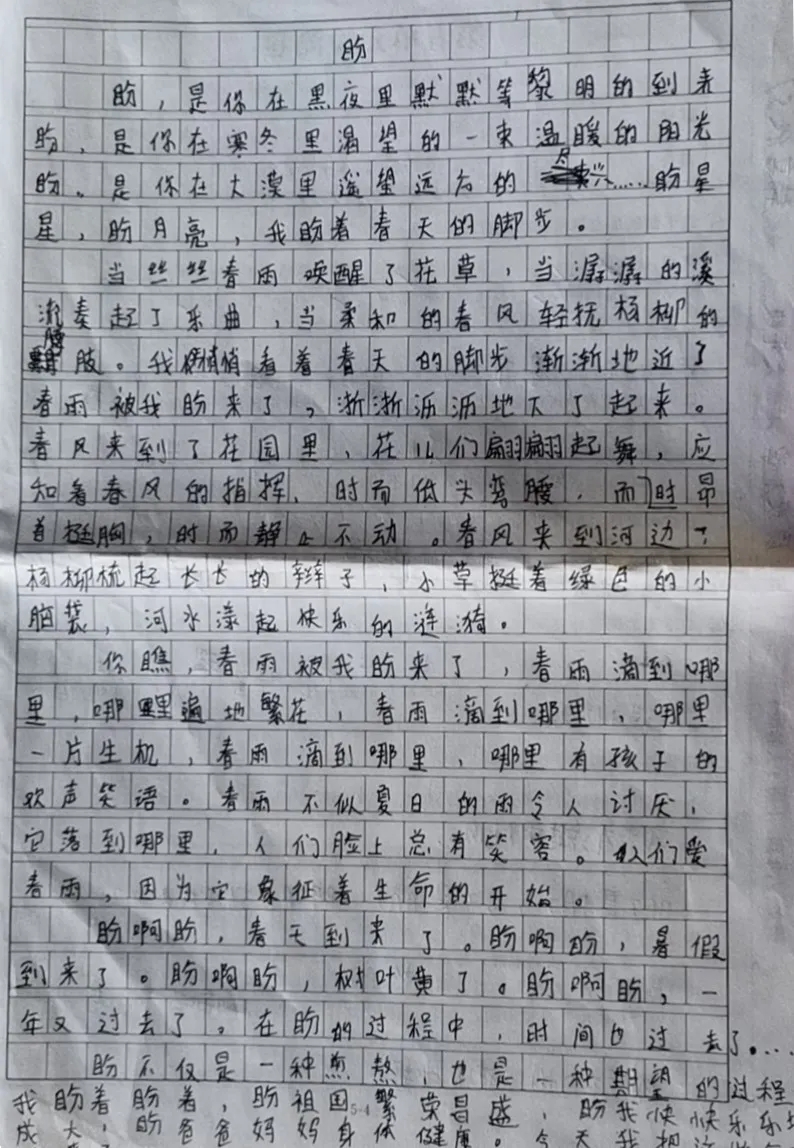 盼
盼，是你在黑夜里默默等黎明的到来
盼，是你在寒冬里渴望的一束温暖的阳光
盼。是你在大漠里遥望远方的……盼星
星，盼月亮，我盼着春天的脚步。
当丝丝春雨唤醒了花草，当潺潺的溪
流奏起了乐曲，当柔和的春风轻抚杨柳的
腰肢。我悄悄看着春天的脚步渐渐地近了
春雨被我盼来了，淅淅沥沥地下了起来。
春风来到了花园里，花儿们翩翩起舞，应
和着春风的指挥，时而低头弯腰，而时昂
首挺胸，时而静止不动。春风来到河边，
杨柳梳起长长的辫子，小草挺着绿色的小
脑袋，河水漾起快乐的涟漪。
你瞧，春雨被我盼来了，春雨滴到哪
里，哪里遍地繁花，春雨滴到哪里、哪里
一片生机，春雨滴到哪里、哪里有孩子的
欢声笑语。春雨不似夏日的雨令人讨厌，
它落到哪里，人们脸上总有笑容。人们爱
春雨，因为它象征着生命的开始。
盼啊盼，春天到来了。盼啊盼，暑假
到来了。盼啊盼，树叶黄了。盼啊盼，一
年又过去了。在盼的过程中，时间也过去了……
盼不仅是一种煎熬，也是一种期望的过程
我盼着盼着，盼祖国繁荣昌盛，盼我快快乐乐
成大，盼爸爸妈妈身体健康。今天我